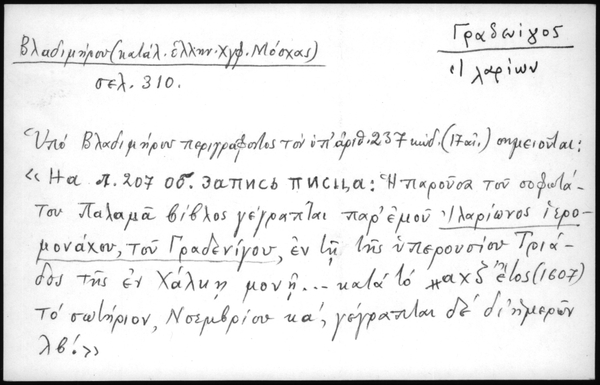 Γραδενίγος
Ἱλαρίων
Βλαδιμήρου (κατάλ. ἑλλην. Χγφ. Μόσχας)
σελ. 310.
Ὑπό Βλαδιμήρου περιγράφοντος τόν ὑπ' ἀριθ. 237 κώδ. (17 αἰ.) σημειοῦται:
« На л. 207 об. запись писца: Ἡ παροῦσα τοῦ σοφωτά-
του Παλαμᾶ βίβλος γέγραπται παρ' ἐμοῦ Ἱλαρίωνος ἱερο-
μονάχου, τοῦ Γραδενίγου, ἐν τῇ τῆς ὑπερουσίου Τριά-
δος τῆς ἐν Χάλκῃ μονῇ... κατά τό ͵αχζ ἔτος (1607)
τό σωτήριον, Νοεμβρίου κα', γέγραπται δέ δι' ἡμερῶν
λβ'. »